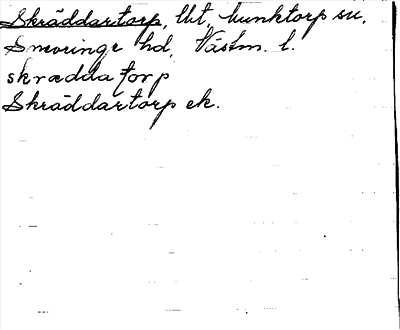 Skräddartorp, lht, Munktorp sn,
Snevringe hd, Västm. l.
skrædda torp
Skräddartorp ek.